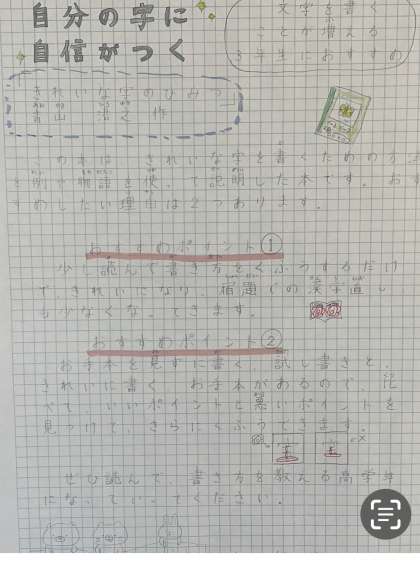 自分の字に
自信がつく
文字を書く
ことが増える
3年生におすすめ
「きれいな字のひみつ」
青山 浩之 作
この本は、きれいな字を書くための方法
を例や物語を使って説明した本です。おす
すめしたい理由は2つあります。
おすすめポイント①
少し読んで書き方をくふうするだけ
で、きれいになり、宿題での漢字直し
も少なくなってきます。
おすすめポイント②
お手本を見ずに書く「試し書き」と、
きれいに書く お手本があるので、比
べて、いいポイントと悪いポイントを
見つけて、さらにくふうできます。
ぜひ読んで、書き方を教える高学年
になっていってください。